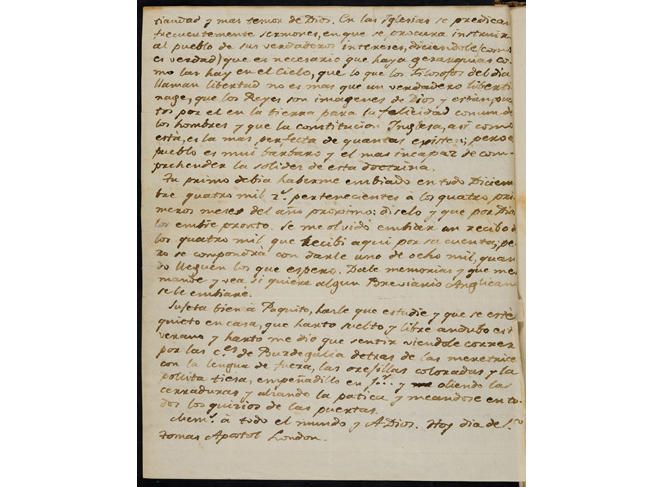 tiandad y mas temor de Dios. En las Iglesias se predican
frecuentemente sermones, en que se procura instruir
al pueblo de sus verdaderos intereses, diciendole (como
es verdad) que es necesario que haya gerarquias co
mo las hay en el Cielo, que lo que los Filosofos del dia
llaman libertad no es mas que un verdadero liberti
nage, que los Reyes son imagenes de Dios y estan pues
tos por el en la tierra para la felicidad comun de
los hombres y que la constitucion Inglesa, asi como
està, es la mas perfecta de quantas existen; pero el
pueblo es mui barbaro y el mas incapaz de com
prehender la solidez de esta doctrina.
Tu primo debia haberme embiado en todo Diciem
bre quatro mil rs. pertenecientes à los quatro pri
meros meses del año proximo: diselo y que por Dios
los embie pronto. Se me olvidó embiar un recibo de
los quatro mil que recibi aqui por su cuenta; pe
ro se compondrà con darle uno de ocho mil, quan
do lleguen los que espero. Dale memorias y que me
mande y vea si quiere algun Breviario Anglicano
se le embiaré.
Sujeta bien à Paquito, hazle que estudie y que se esté
quieto en casa, que harto suelto y libre andubo este
verano y harto me dio que sentir viendole correr
por las c.es de Burdegalia detras de las meretrices
con la lengua de fuera, las orejillas coloradas y la
pollita tiesa, empeñadillo en y oliendo las
cerraduras y alzando la patica y meandose en to
dos los quicios de las puertas.
Mem.s à todo el mundo y A Dios. Hoy dia de S.to
Tomas Apostol London.